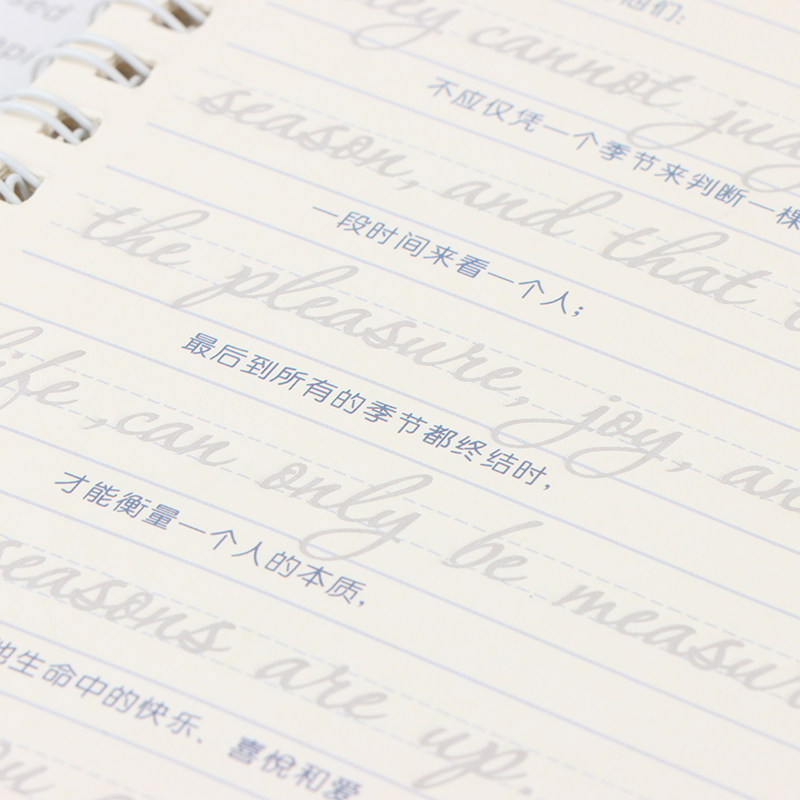 cannot
不应仅凭一个季节来判断一棵
season, and that
一段时间来看一个人;
the pleasure, joy, an
最后到所有的季节都终结时,
life, can only be measur
才能衡量一个人的本质,
seasons are up.
生命中的快乐、喜悦和爱